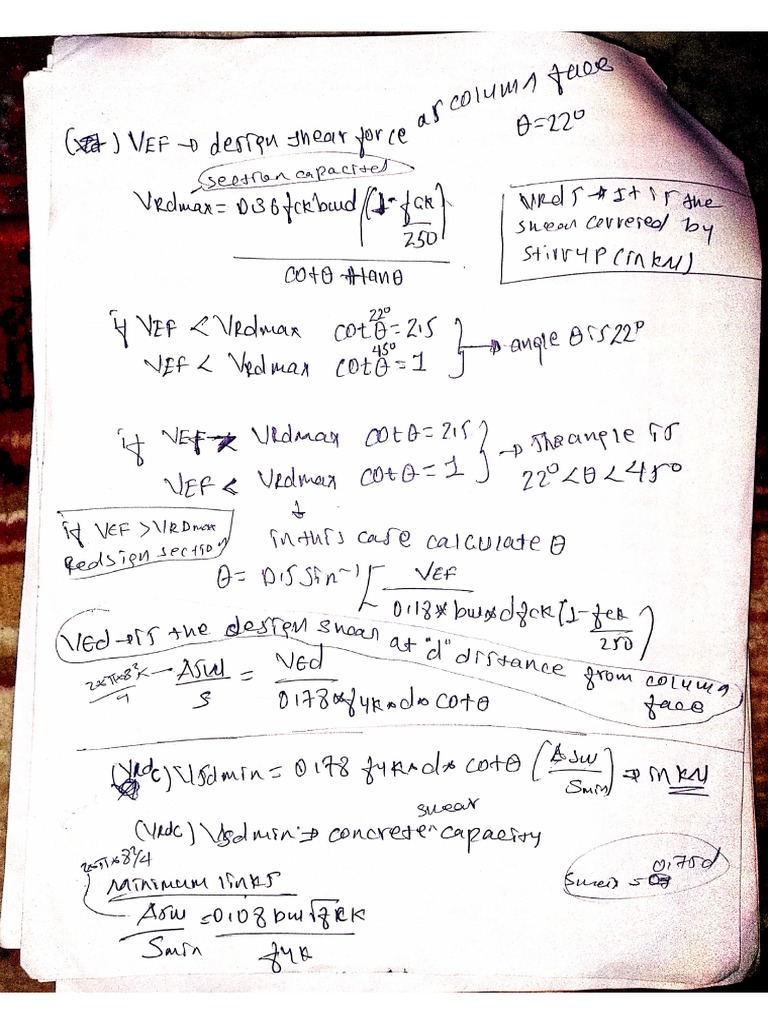 VEF → design shear force at column face
θ=22°
section capacites
VRdmax = 0.36 fck bwd (1- fck/250)
cotθ + tanθ
VRds → It is the
shear coverred by
stirrup (in kN)
if VEF < VRdmax cotθ = 2.5
22°
VEF < VRdmax cotθ = 1
45°
→ angle θ is 22°
if VEF > VRdmax cotθ = 2.5
VEF < VRdmax cotθ = 1
→ The angle is
22° < θ < 45°
if VEF > VRDmax
Redsign section
in this case calculate θ
θ = 0.5 sin⁻¹ [ VEF / 0.18*bw*dfck [1- fck/250) ]
VEd → is the design shear at "d" distance from column
face
2*π*8²/4 - Asw/S = VEd / 0.78*fyk*d*cotθ
(VRdc) Vsdmin = 0.78 fyk*d* cotθ (Asw/Smin) → in kN
(VRdc) Vsdmin → concrete shear capacity
2*π*8²/4
Minimum links
Asw/Smin = 0.08 bw√fck / fyk
0.75d